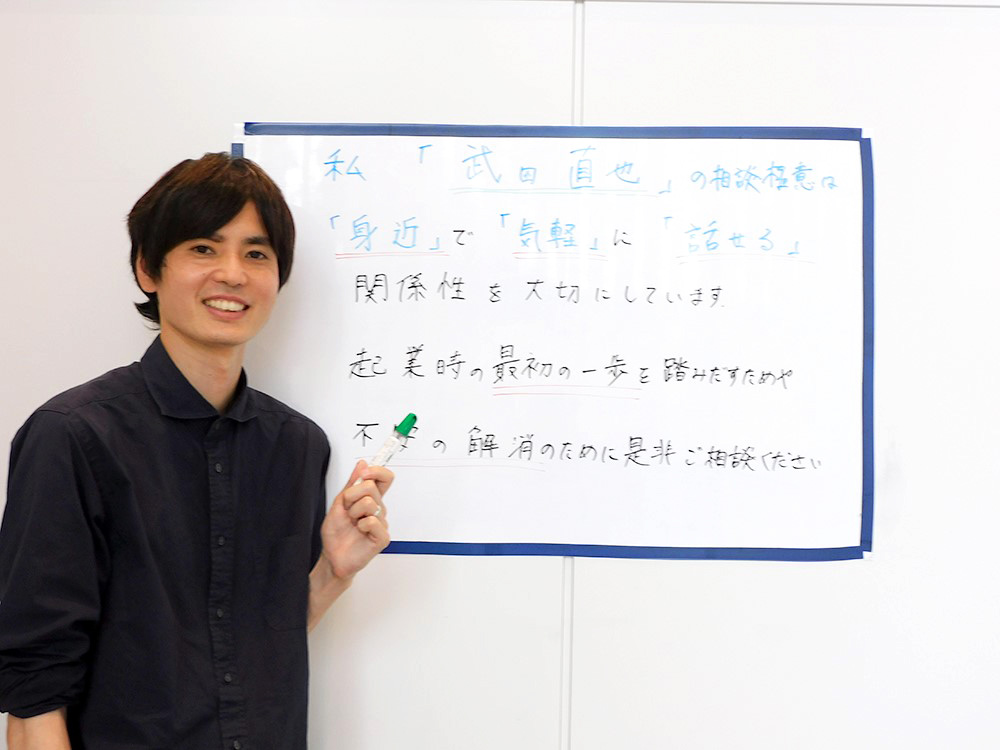 私 「武田直也」の相談極意は
「身近」で「気軽」に「話せる」
関係性を大切にしています.
起業時の最初の一歩を踏みだすためや
不安の解消のために是非ご相談ください